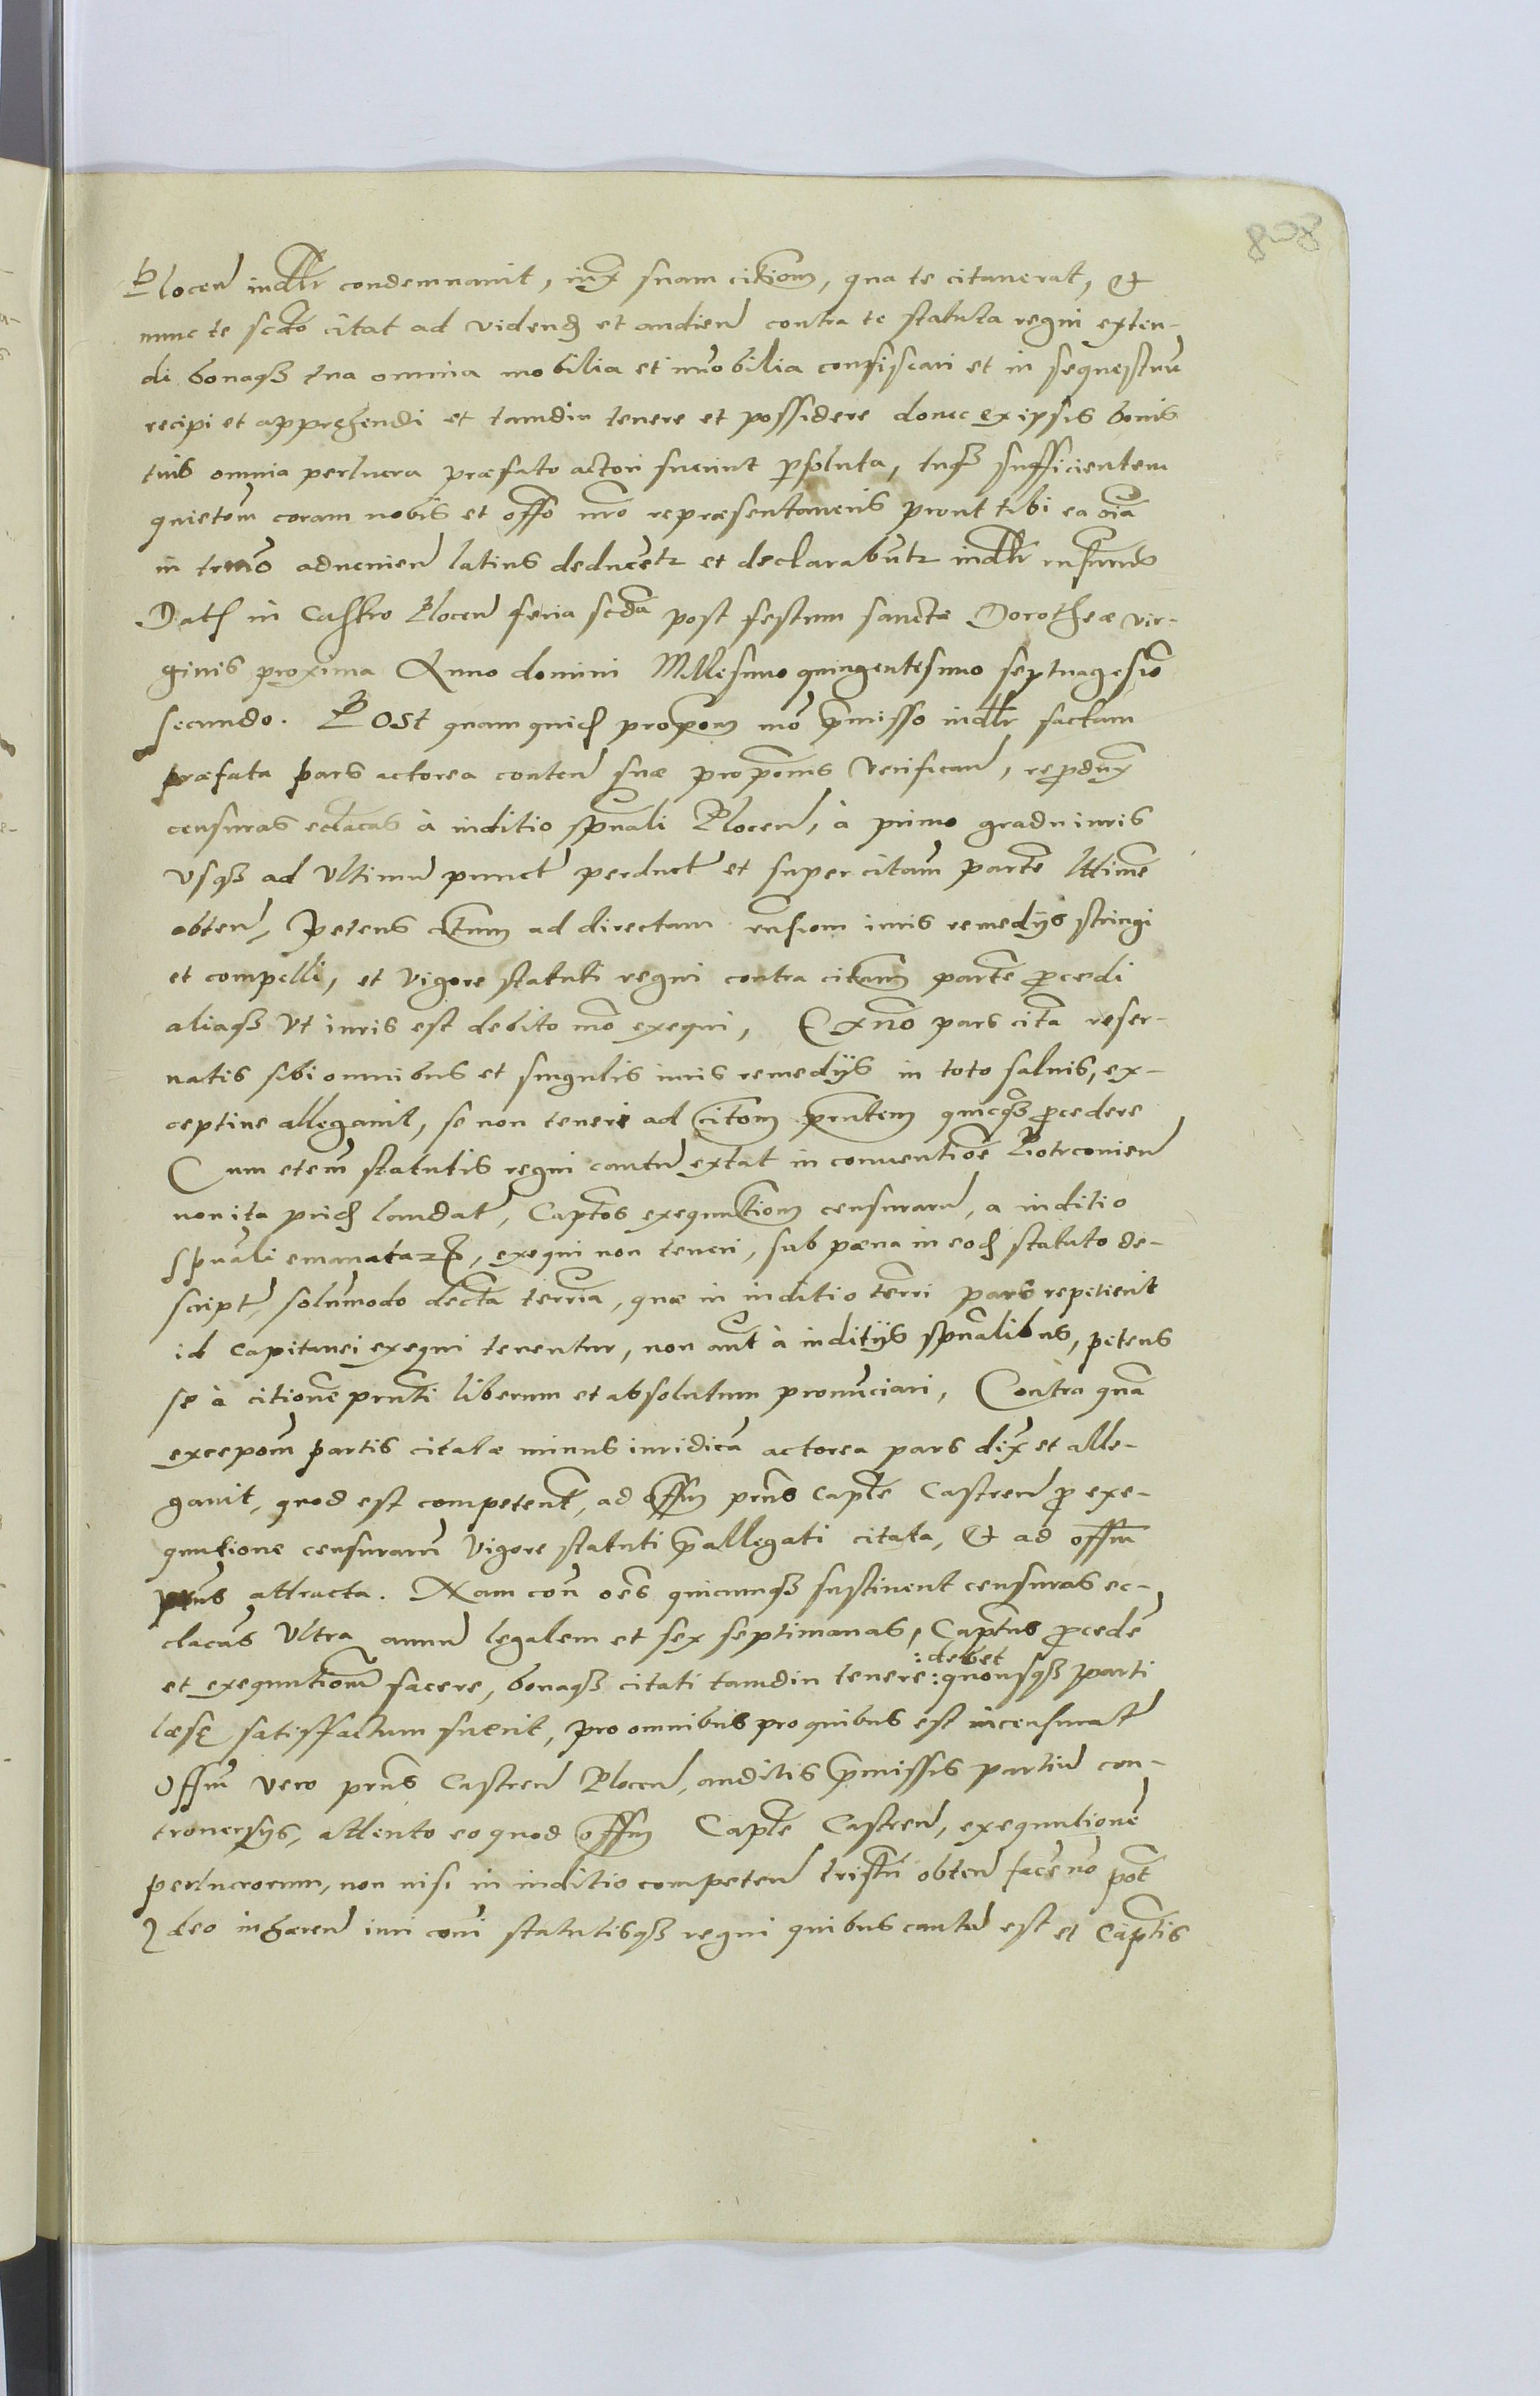 808
Plocen̄ iudlr condemnauit, iux suam citiom, qua te citauerat, et
nunc te scdo citat ad videnđ et audien̄ contra te statuta regni exten-
di bonaqȝ tua omnia mobilia et imobilia confiscari et in sequestrum
recipi et apprehendi et tamdiu tenere et possidere donec ex ipsis bonis
tuis omnia perlucra præfato actori fuerint psoluta, tuqȝ sufficientem
quietom coram nobis et offo nro repræsentaueris prout tibi ea oia
in trmo aduenien̄ latius deducetr et declarabuntr iudlr rnsurus
Datƺ in Castro Plocen̄ feria scda post festum sanctæ Dorotheæ vir-
ginis proxima Anno domini Millesimo quingentesimo septuagesimo
secundo. POst quam quidƺ propom mo pmisso iudlr factam
præfata pars actorea conten̄ suæ propomis verifican̄, reprodux
censuras eclacas à iuditio spuali Plocen̄, à primo gradu iuris
vsqȝ ad vltimum punctum perduct et super citam partem lttime
obten̄, petens citum ad directam rnsiom iuris remedijs stringi
et compelli, et vigore statuti regni contra citam partem pcedi
aliaqȝ vt iuris est debito mo exequi, Ex no pars cita reser-
uatis sibi omnibus et singulis iuris remedijs in toto saluis, ex-
ceptiue allegauit, se non teneri ad citom prntem quicqȝ pcedere
Cum etem statutis regni cautum extat in conuentione Piotrconien̄
non ita pridƺ laudat, Captos exequutiom censurarum, a iuditio
spuali emanatarƺ, exequi non teneri, sub pœna in eodƺ statuto de-
script, solummodo decta terria, quæ in iuditio terri pars repetierit
id Capitanei exequi tenentur, non aut à iuditijs spualibus, petens
se à citione prnti liberum et absolutum pronunciari, Contra quam
excepom partis citatæ minus iuridicam actorea pars dix et alle-
gauit, quod est competent, ad offm prns capte Castren̄ p exe-
quutione censurarum vigore statuti pallegati citata, et ad offm
prns attracta. Nam com oes quicunqȝ sustinent censuras ec-
clacas vltra annum legalem et sex septimanas, Captus pcede
et exequutiom facere, bonaqȝ citati tamdiu tenere :debet: quousqȝ parti
læsę satisfactum fuerit, pro omnibus pro quibus est incensurat
Offm vero prns Castren̄ Plocen̄, auditis pmissis partium con-
trouersijs, attento eo quod offm Capte Castren̄, exequutionem
perlucrorum, non nisi in iuditio competen̄ obten̄ facere no pot
Ideo inhæren̄ iuri comi statutisqȝ regni quibus cautum est et Captis